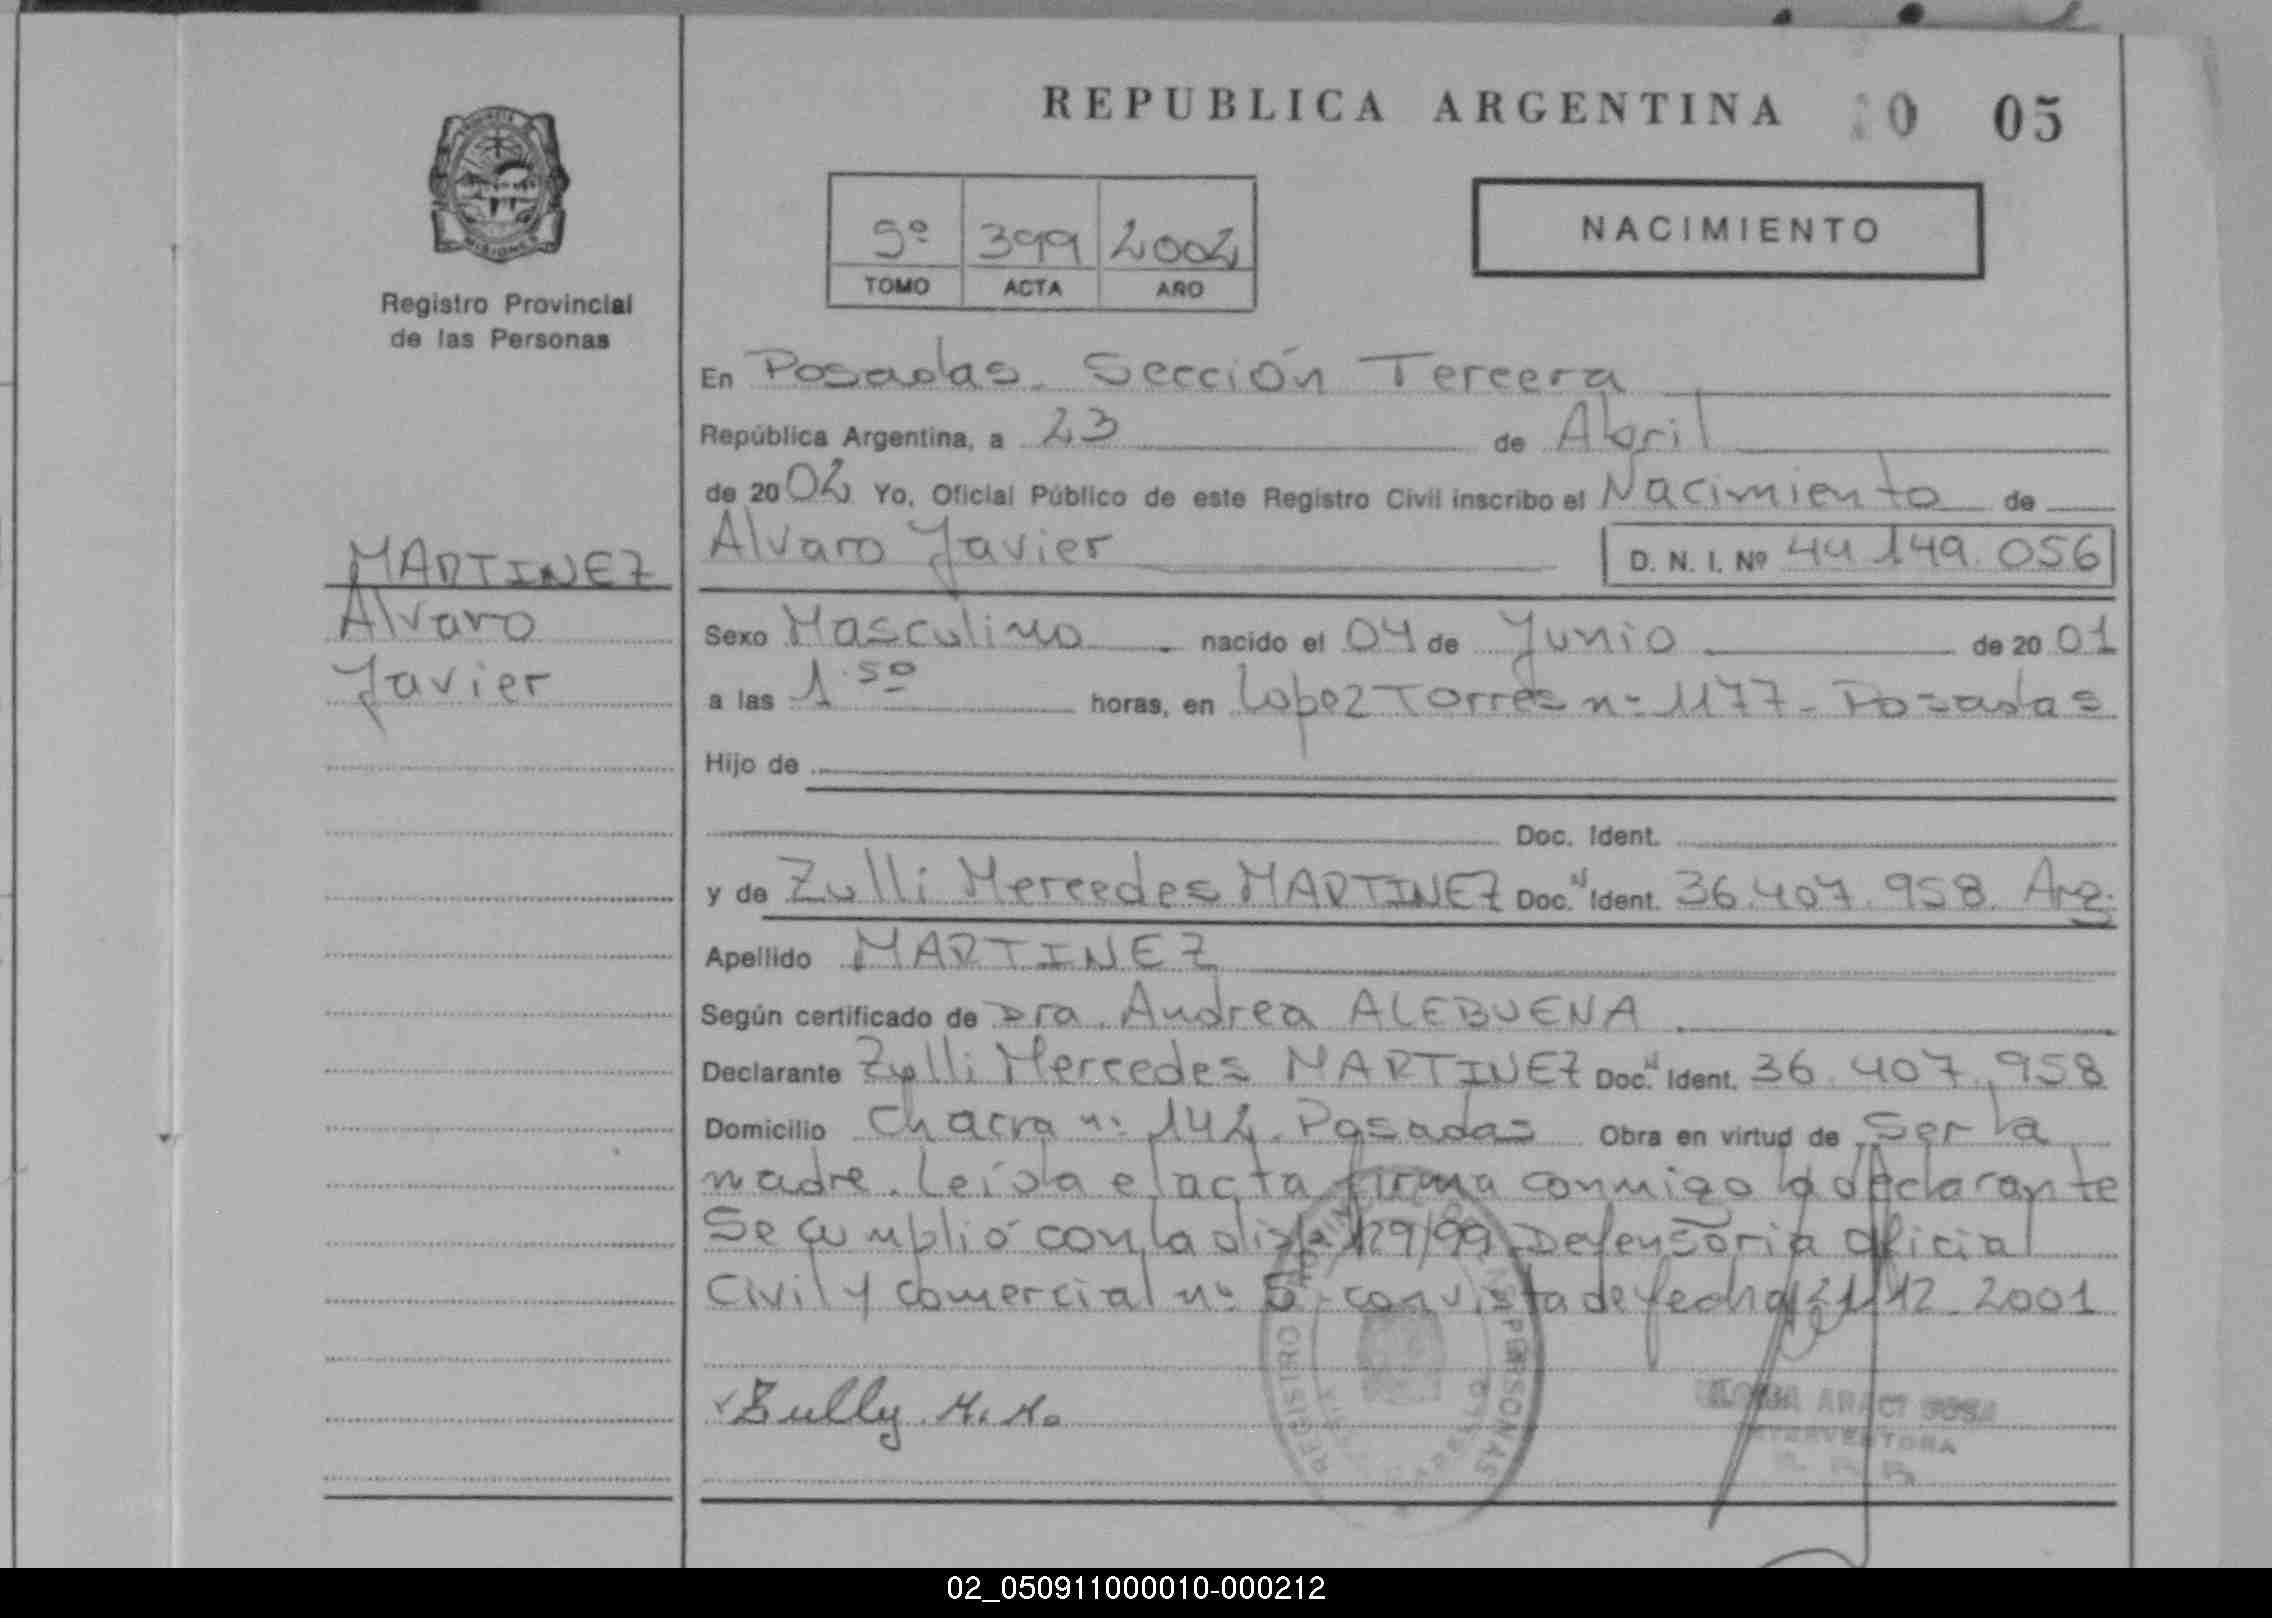 REPUBLICA ARGENTINA 20 05
Registro Provincial
de las Personas
5º 399 2002
TOMO ACTA AÑO
NACIMIENTO
En Posadas. Sección Tercera
República Argentina, a 23 de Abril
de 2002 Yo, Oficial Público de este Registro Civil inscribo el Nacimiento de
Alvaro Javier D. N. I. Nº 44 149. 056
MARTINEZ
Alvaro
Javier
Sexo Masculino nacido el 04 de Junio de 20 01
a las 1.50 horas, en Lopez Torres nº 1177 - Posadas
Hijo de
Doc. Ident.
y de Zulli Mercedes MARTINEZ Doc. Ident. 36.407.958 Arg.
Apellido MARTINEZ
Según certificado de Dra. Andrea ALEBUENA
Declarante Zulli Mercedes MARTINEZ Doc. Ident. 36.407.958
Domicilio Chacra nº 142. Posadas Obra en virtud de Ser la
madre. Leída el acta firma conmigo la declarante
Se cumplió con la disp. 129/99 Defensoría Oficial
Civil y Comercial nº 5 - con vista de fecha 21 12 2001
Zully M. M.
REGISTRO PROVINCIAL DE LAS PERSONAS
ARACI SOSA
INTERVENTORA
02_050911000010-000212